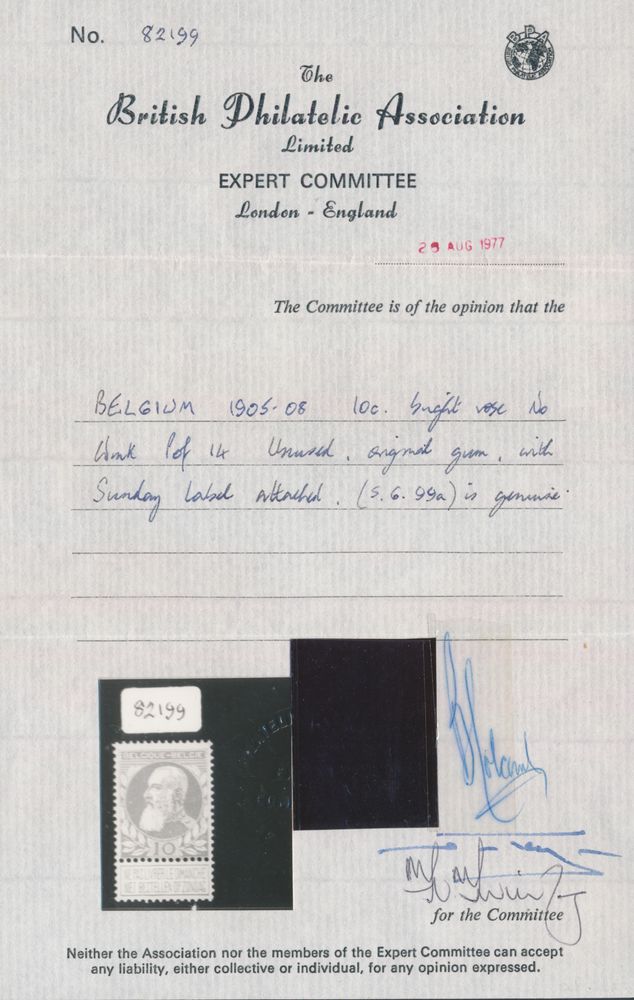 No. 82199
BPA
The
British Philatelic Association
Limited
EXPERT COMMITTEE
London - England
29 AUG 1977
The Committee is of the opinion that the
BELGIUM 1905-08 10c. bright rose No
Wmk Perf 14 Unused, original gum, with
Sunday label attached. (S.G. 99a) is genuine.
82199
BELGIQUE-BELGIË
10
NE PAS LIVRER LE DIMANCHE
NIET BESTELLEN OP ZONDAG
for the Committee
Neither the Association nor the members of the Expert Committee can accept
any liability, either collective or individual, for any opinion expressed.